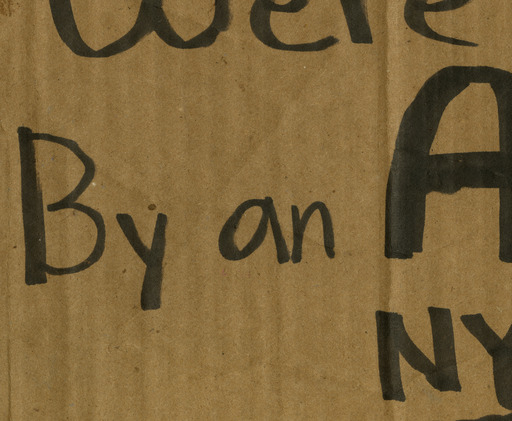 Were
By an A
NY